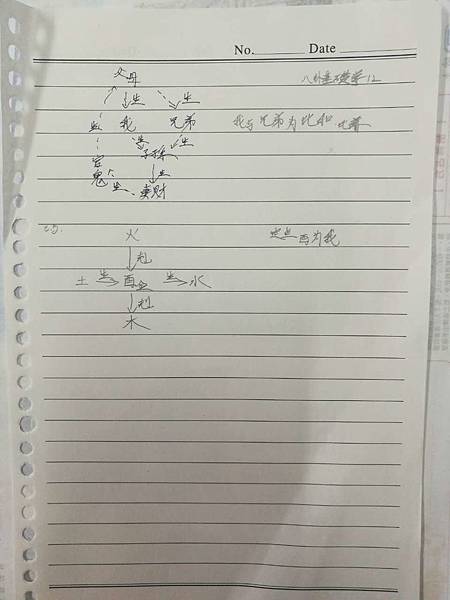 No. Date
父母
八卦基础学 12
生 生
我 兄弟 我与兄弟为比和
生 子孙 生
官鬼 生
生 妻财
火 定点酉为我
克
土 生 酉金 生 水
克
木